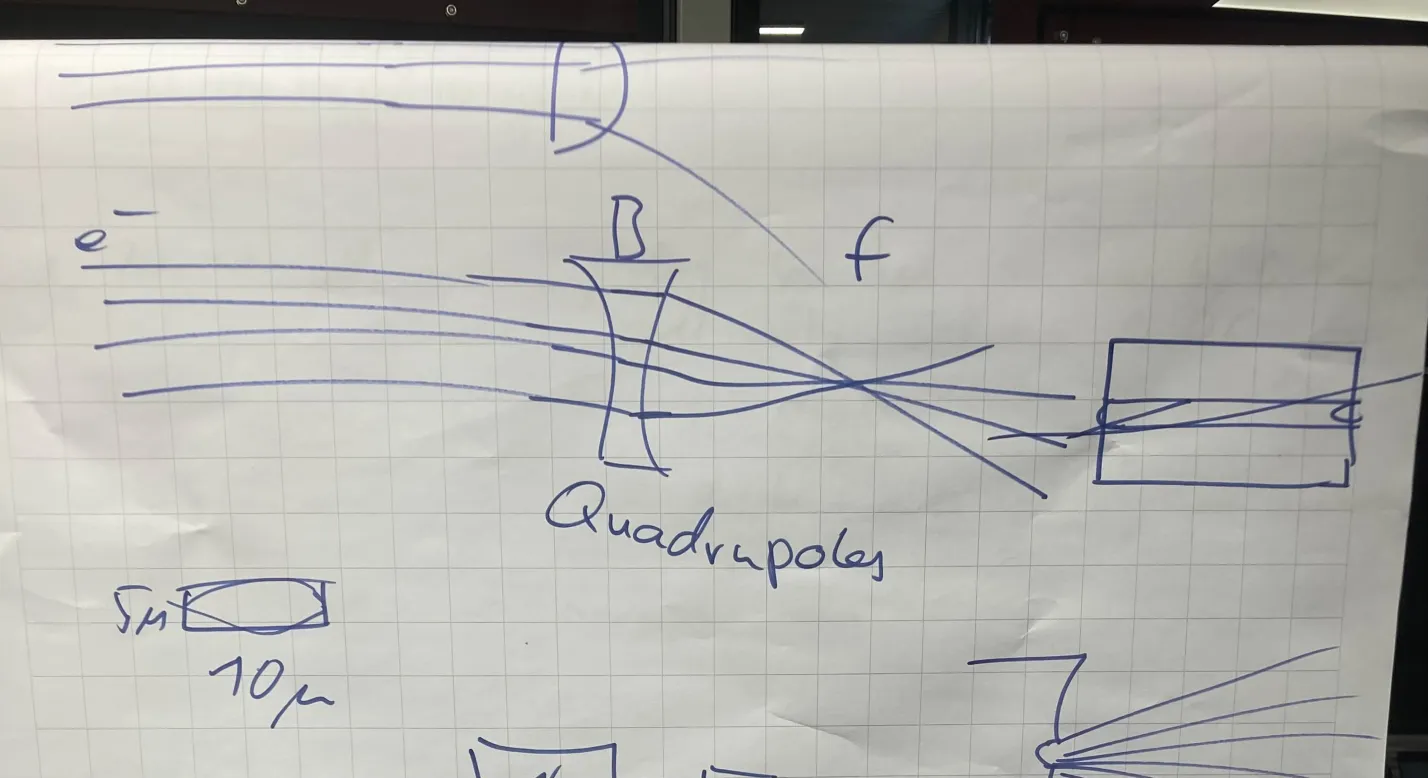 e⁻
B
f
Quadrupoles
5μ
10μ